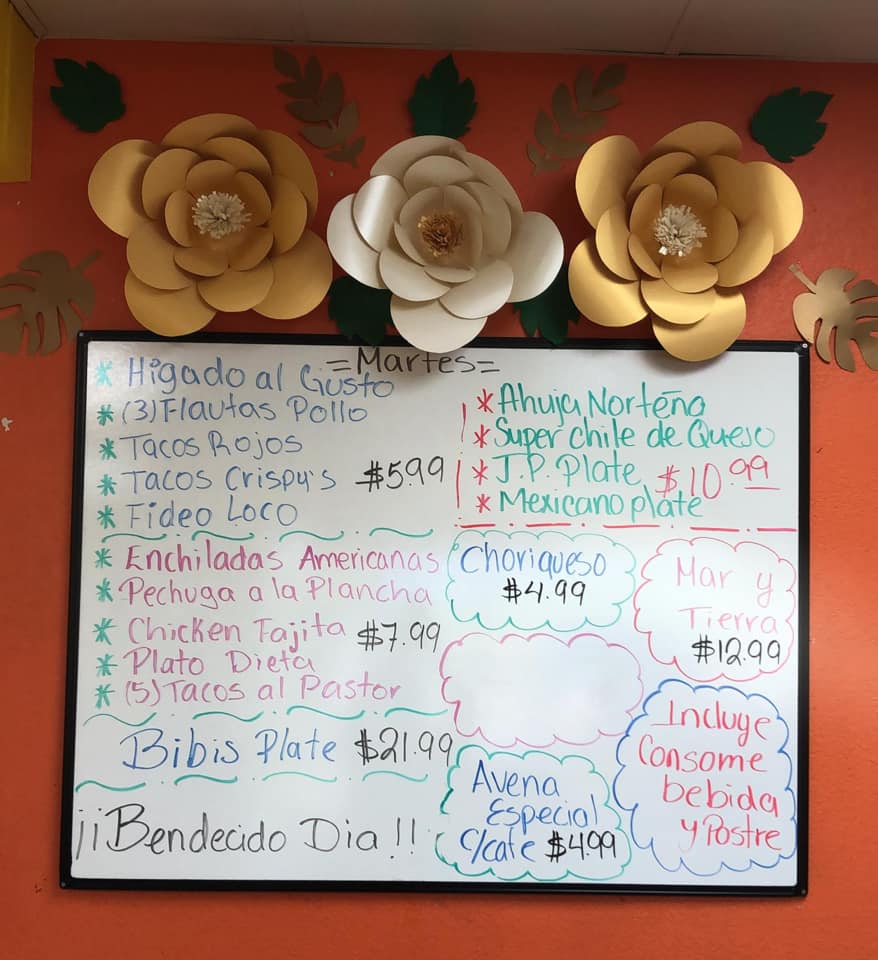 =Martes=
* Higado al Gusto
* (3) Flautas Pollo
* Tacos Rojos
* Tacos Crispy's $5.99
* Fideo Loco
* Ahuja Norteña
* Super chile de Queso
* J.P. Plate $10.99
* Mexicano plate
* Enchiladas Americanas
* Pechuga a la Plancha
* Chicken Fajita $7.99
* Plato Dieta
* (5) Tacos al Pastor
Choriqueso
$4.99
Mar y
Tierra
$12.99
Bibis Plate $21.99
Avena
Especial
c/cafe $4.99
Incluye
Consome
bebida
y Postre
¡¡Bendecido Dia!!